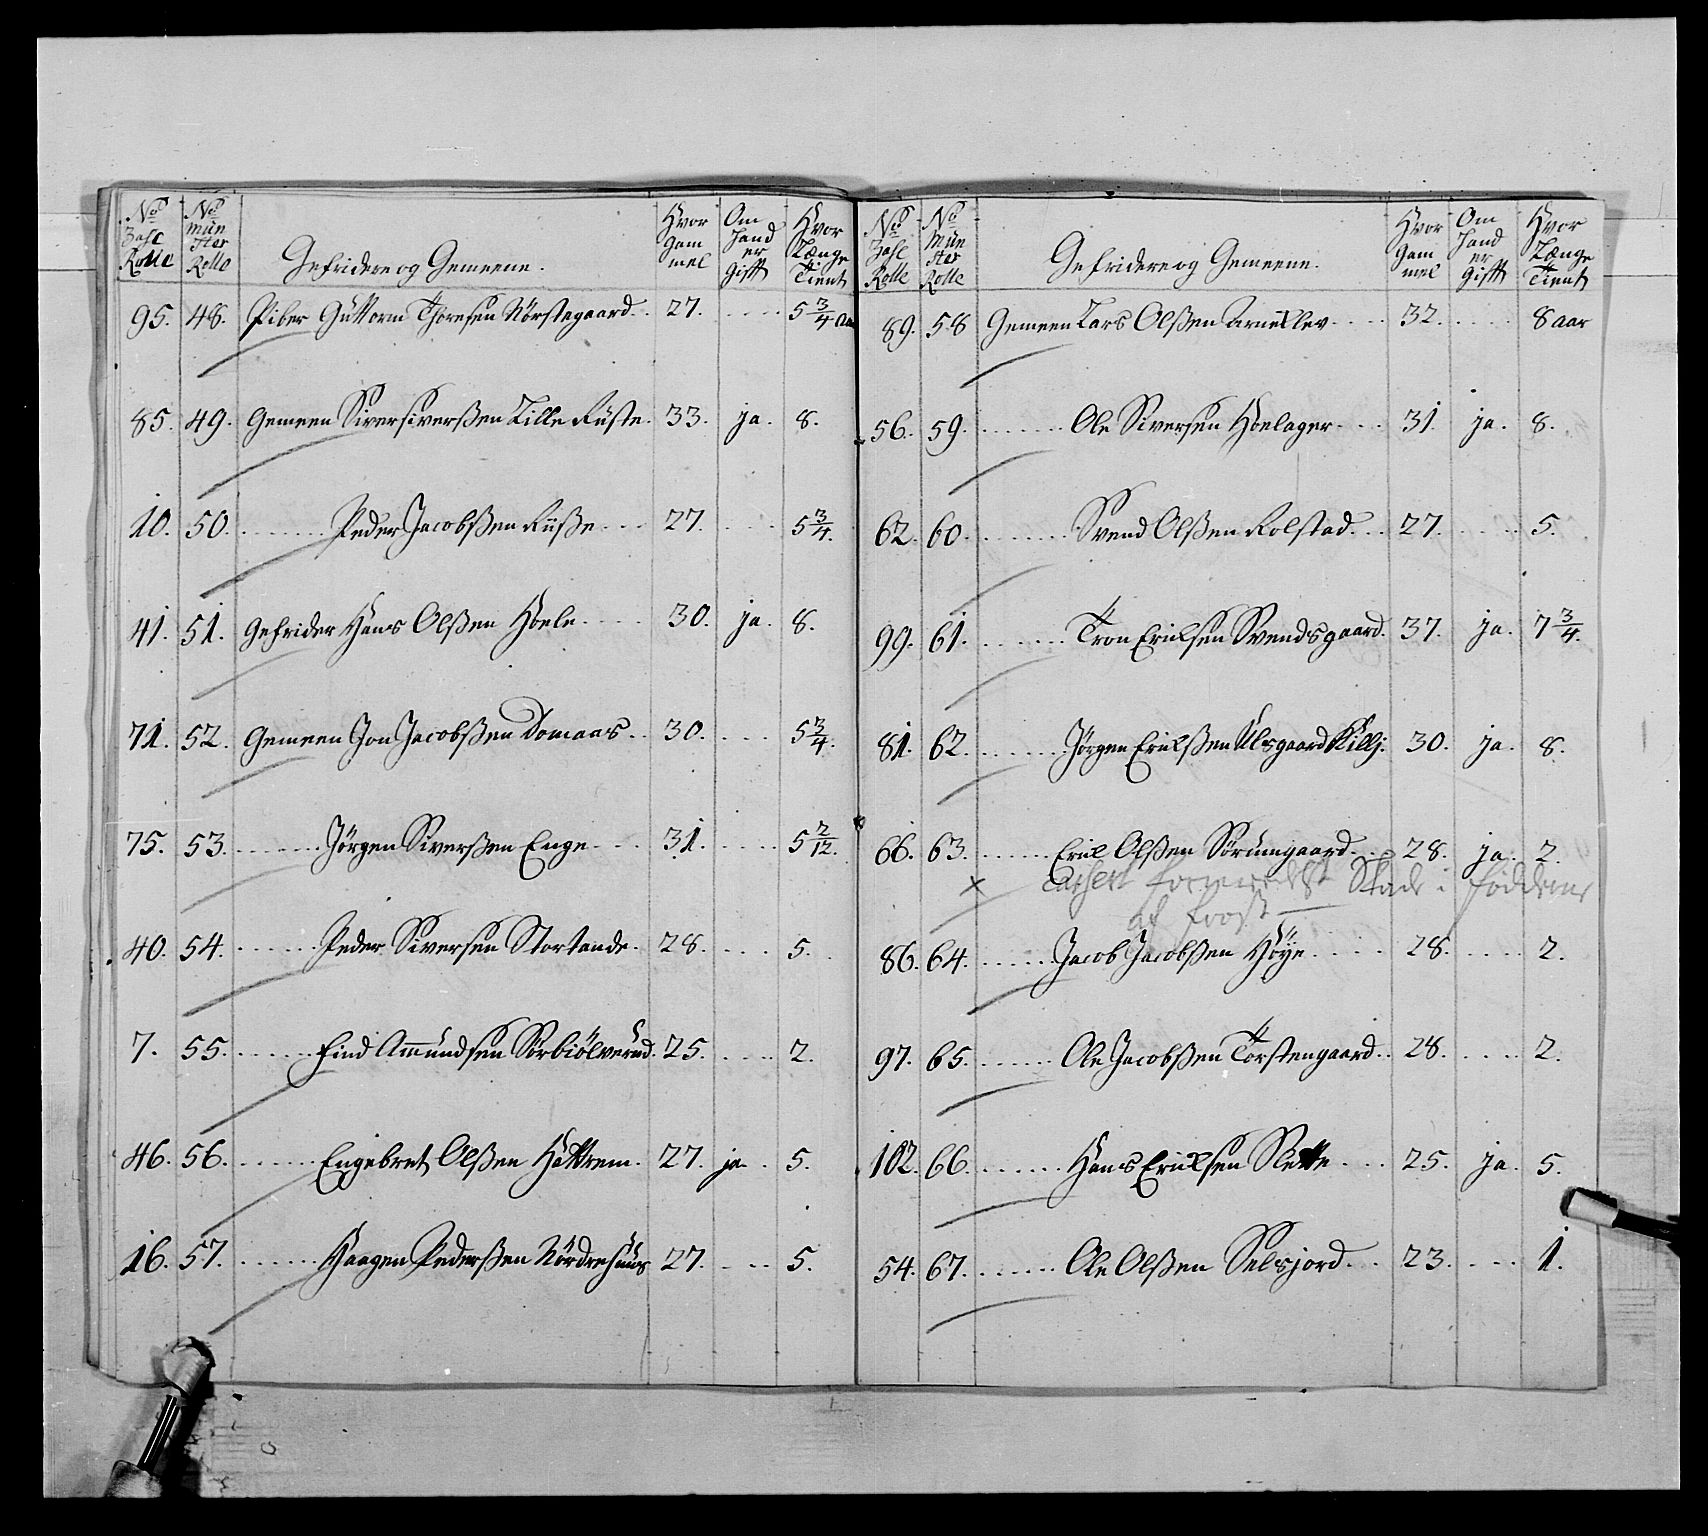 No Zahl Rolle
No Mün ster Rolle
Gefridere og Gemeene.
Hvor Gam mel
Om hand er Gifft
Hvor Længe Tient
95. 48. Piber Guttorm Thoresen Nörstegaard. 27. 5 3/4 aar
85. 49. Gemeen Siver Siverßen Lille Rüste. 33. ja. 8.
10. 50. Peder Jacobßen Riiße 27. 5 3/4.
41. 51. Gefrider Hans Olßen Hoele 30. ja. 8.
71. 52. Gemeen Jon Jacobßen Domaas 30. 5 3/4.
75. 53. Jörgen Siverßen Enge 31. 5 2/12.
40. 54. Peder Siversen Stortande 28. 5.
7. 55. Find Amundsen Sörbiölverud 25. 2.
46. 56. Engebret Olßen Hattrem 27. ja. 5.
16. 57. Haagen Pederßen Nördrehuus 27. 5.
No Zahl Rolle
No Mün ster Rolle
Gefridere og Gemeene.
Hvor Gam mel
Om hand er Gifft
Hvor Længe Tient
89. 58 Gemeen Lars Olßen Arnellev 32. 8 aar
56. 59. Ole Siversen Hoelager 31. ja. 8.
62. 60. Svend Olßen Rolstad 27. 5.
99. 61. Tron Ericksen Svendsgaard. 37. ja. 7 3/4.
81. 62. Jörgen Erickßen Ulsgaard Killj. 30. ja. 8.
66. 63. Erick Olßen Sörumgaard 28. ja. 2.
x Casert formedelst Skade i føddene
af frost
86. 64. Jacob Jacobßen Höye 28. 2.
97. 65. Ole Jacobßen Torstengaard 28. 2.
102. 66. Hans Ericksen Slette 25. ja. 5.
54. 67. Ole Olßen Selsjord 23. 1.